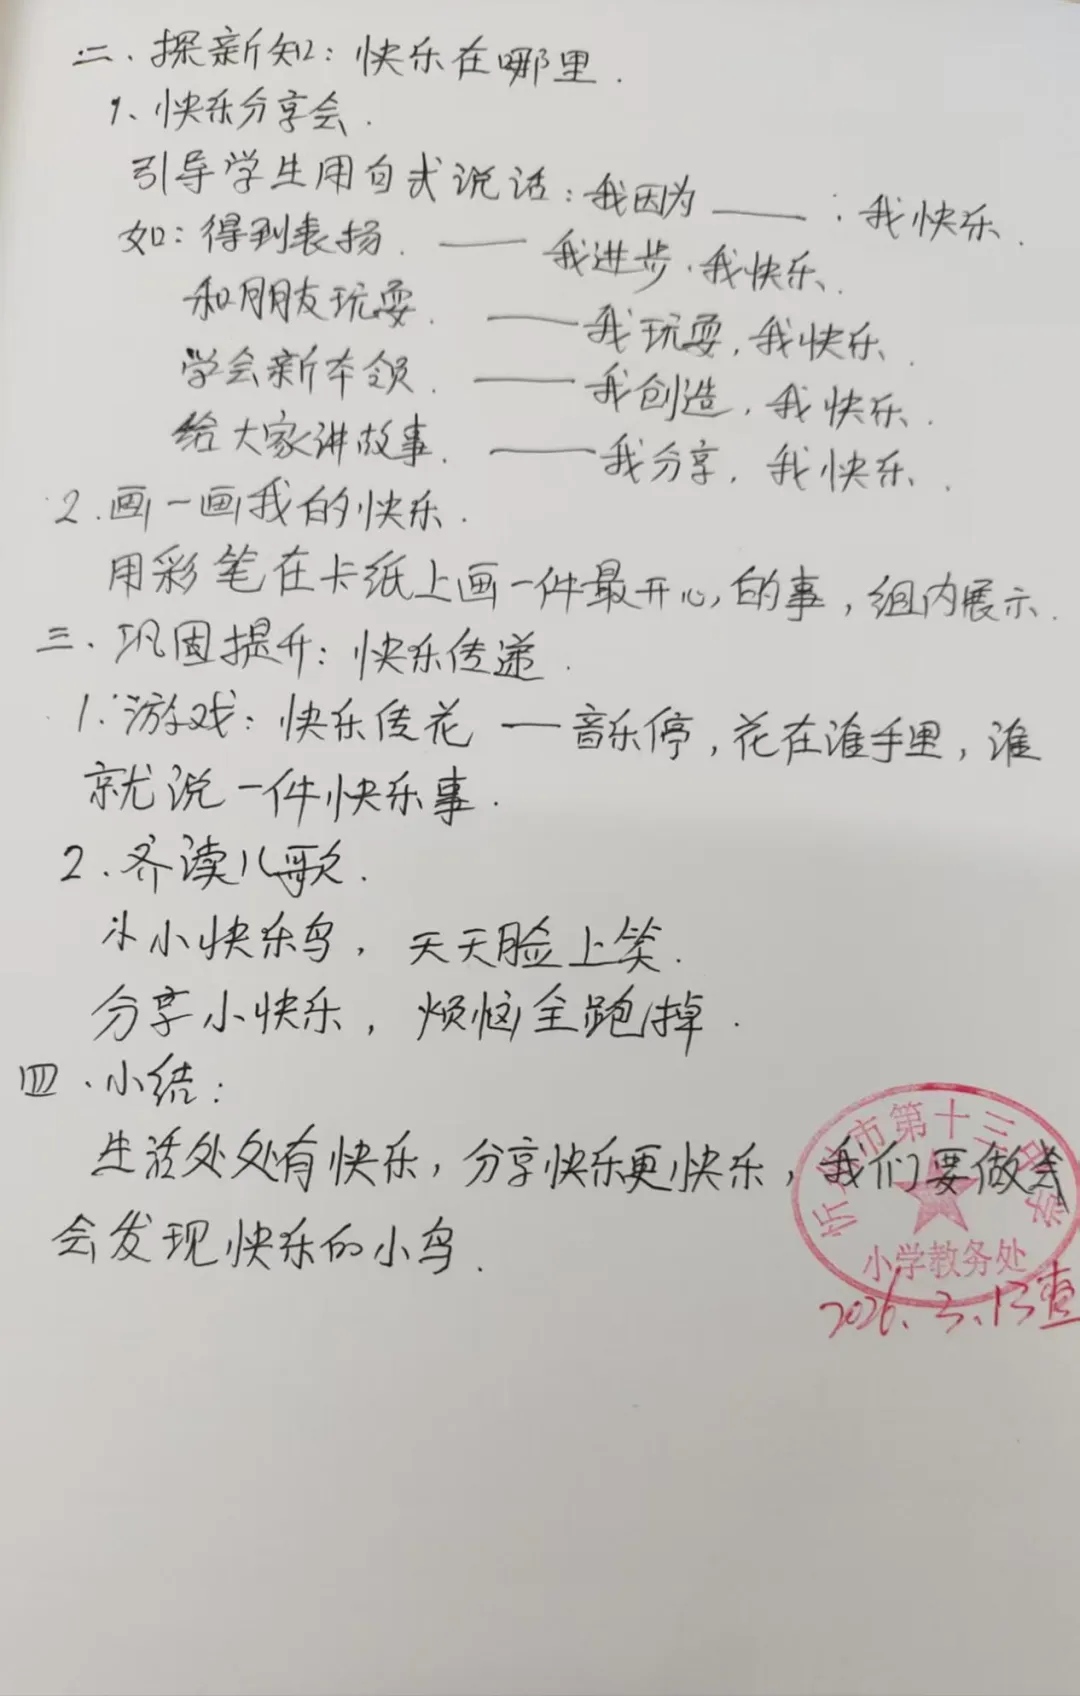 二、探新知：快乐在哪里.
1、快乐分享会.
引导学生用句式说话：我因为____，我快乐.
如：得到表扬. —— 我进步.我快乐.
和朋友玩耍. —— 我玩耍，我快乐.
学会新本领. —— 我创造，我快乐.
给大家讲故事. —— 我分享，我快乐.
2.画一画我的快乐.
用彩笔在卡纸上画一件最开心的事，组内展示.
三、巩固提升：快乐传递.
1.游戏：快乐传花 —— 音乐停，花在谁手里，谁
就说一件快乐事.
2.齐读儿歌.
小快乐鸟，天天脸上笑.
分享小快乐，烦恼全跑掉.
四、小结：
生活处处有快乐，分享快乐更快乐，我们要做
会发现快乐的小鸟.
市第十三
小学教务处
2026.3.13查